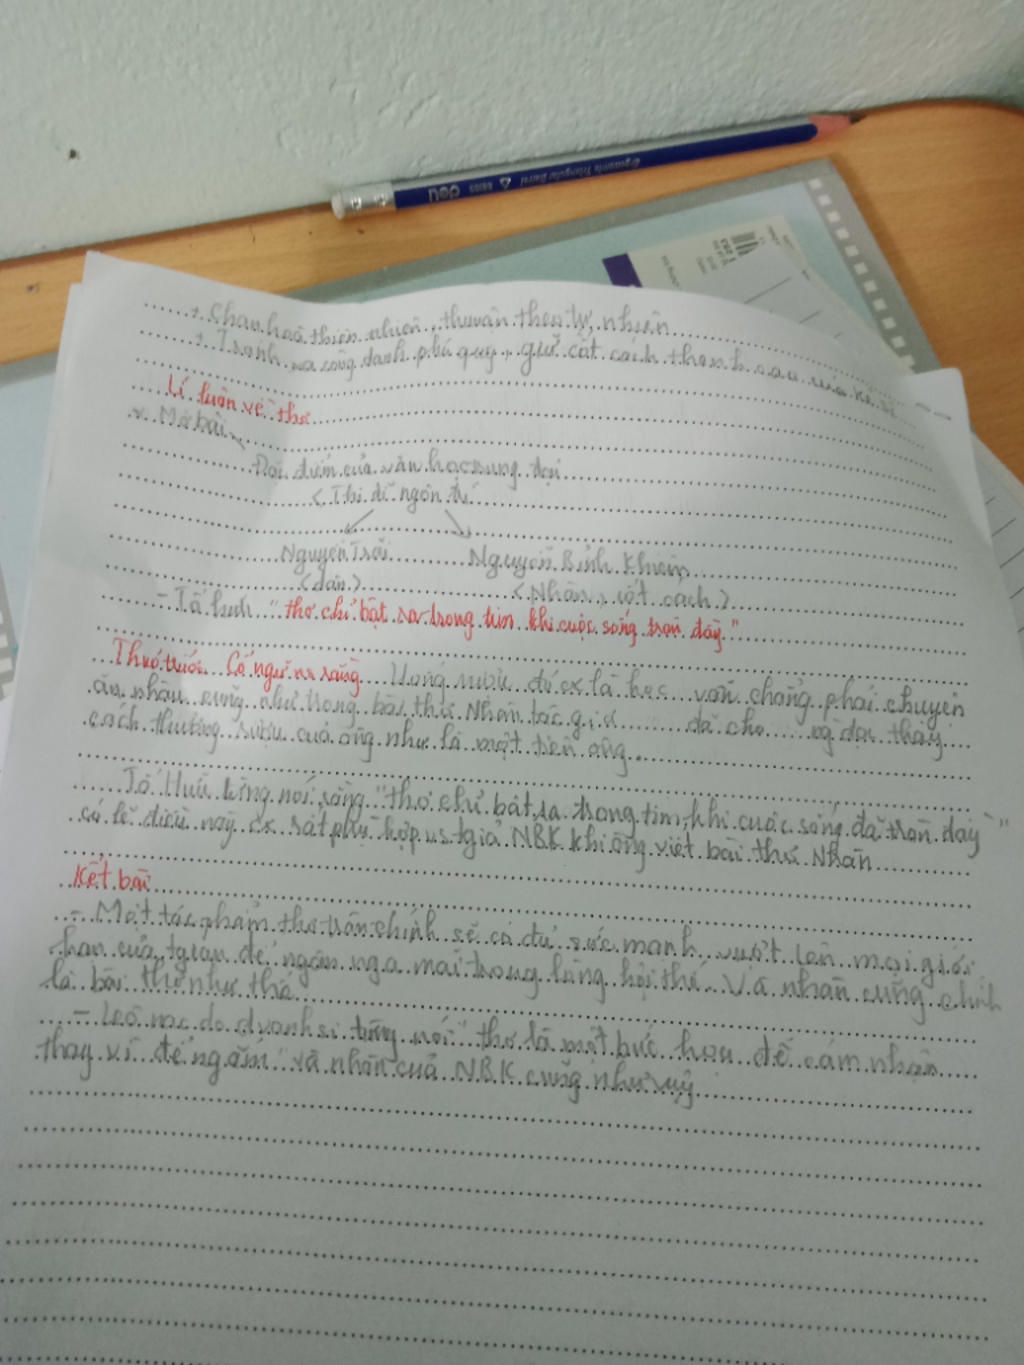 deli 58105 @graphite Triangular Barrel
+ Chan hoà thiên nhiên, thuận theo tự nhiên
+ Tránh xa công danh phú quý, giữ cốt cách thanh cao của kẻ sĩ
Lí luận về thơ
v. Mở bài
Đặc điểm của văn học trung đại
< Thi dĩ ngôn chí
Nguyễn Trãi Nguyễn Bỉnh Khiêm
(dân) < Nhàn, cốt cách >
- Tố hữu "thơ chỉ bật ra trong tim khi cuộc sống tràn đầy"
Thuở trước Có người nói rằng Uống rượu đó cx là học vốn chẳng phải chuyện
ăn nhậu cũng như trong bài thơ Nhàn tác giả ........ đã cho ..... ng đọc thấy
cách thưởng rượu của ông như là một tiên ông..
Tố Hữu từng nói rằng "thơ chỉ bật ra trong tim, khi cuộc sống đã tràn đầy"
có lẽ điều này cx rất phù hợp vs tgiả NBK khi ông viết bài thơ Nhàn
Kết bài
- Một tác phẩm thơ chân chính sẽ có đủ sức mạnh vượt lên mọi giới
hạn của tgian để ngân nga mãi trong lòng hội thế. Và nhàn cũng chính
là bài thơ như thế
- Leo nac do dvanhsi từng nói "thơ là một bức họa để cảm nhận
thay vì để ngắm" và nhàn của NBK cũng như vậy